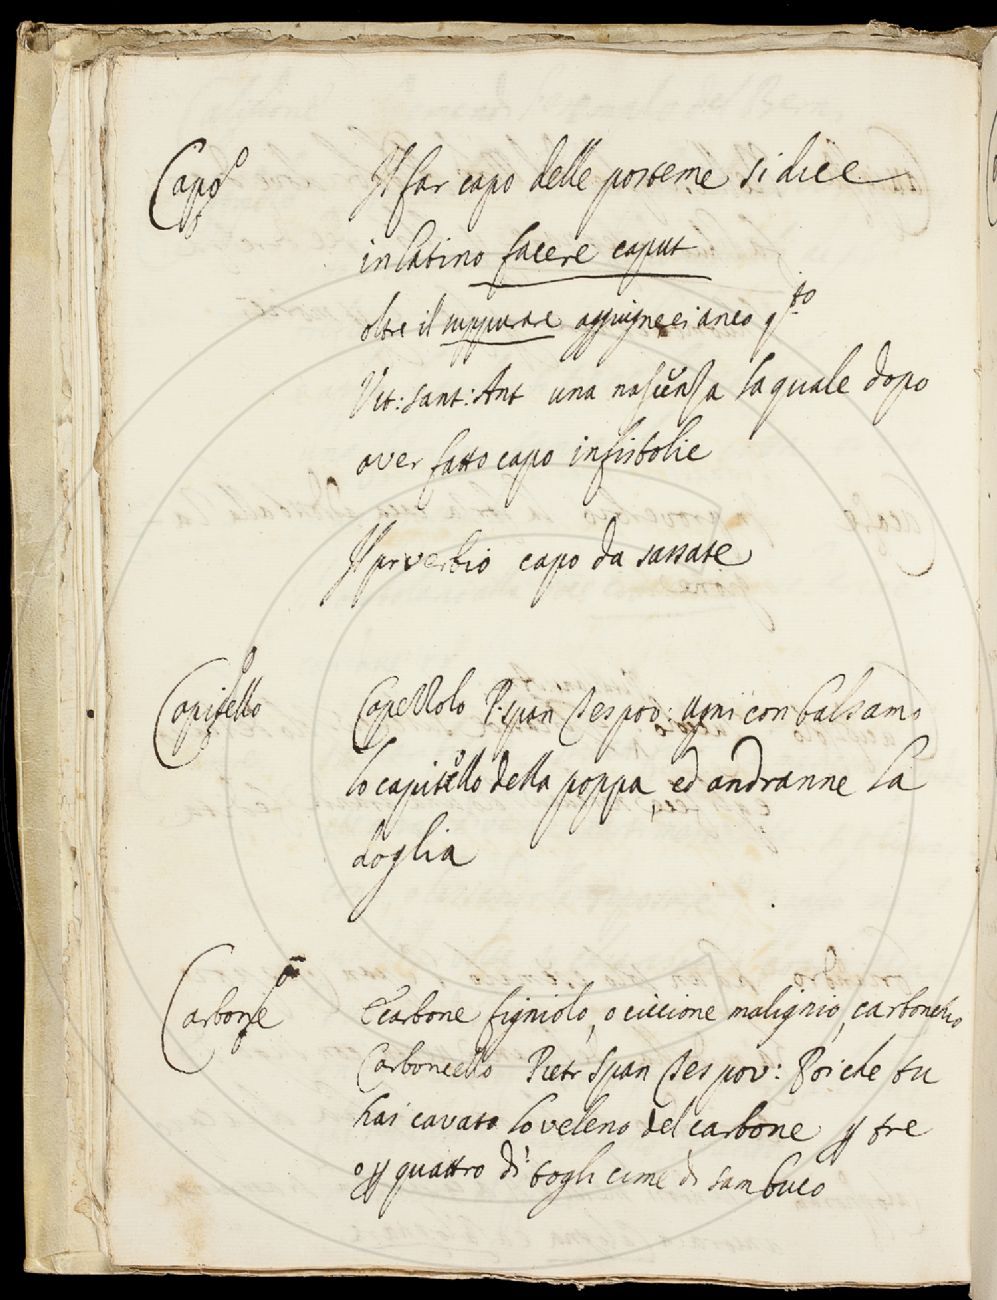 Capo
Il far capo delle posteme si dice
in latino facere caput
oltre il suppurare aggiugneci anco q.to
Vit: sant: Ant una nascenza la quale dopo
aver fatto capo infistolie
Il prverbio capo da sassate
Capitello
Capezzolo P. span Tes pov: ugni con balsamo
lo capitello della poppa, ed andranne la
doglia
Carbone
Carbone figniolo, o ciccione malignio, carbonchio
Carboncello Pietr Span Tes pov: Poiche tu
hai cavato lo veleno del carbone p tre
o p quattro dì togli cime di sambuco